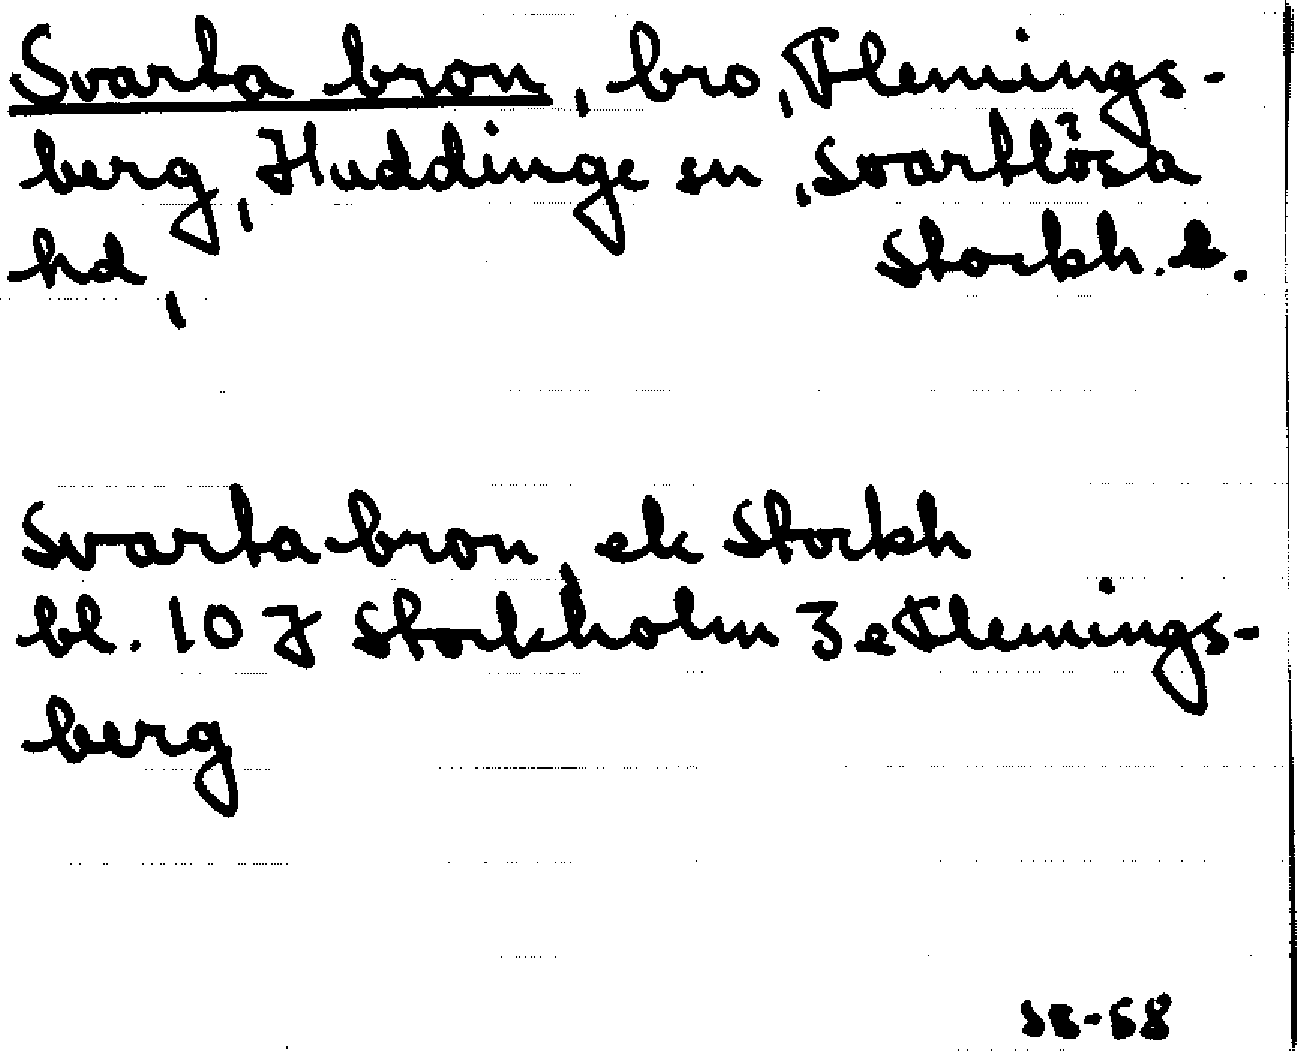 Svarta bron, bro, Flemings-
berg, Huddinge sn, Svartlösa
hd, Stockh. l.
Svarta bron, ek Stockh
bl. 10 J Stockholm 3 e Flemings-
berg
-68